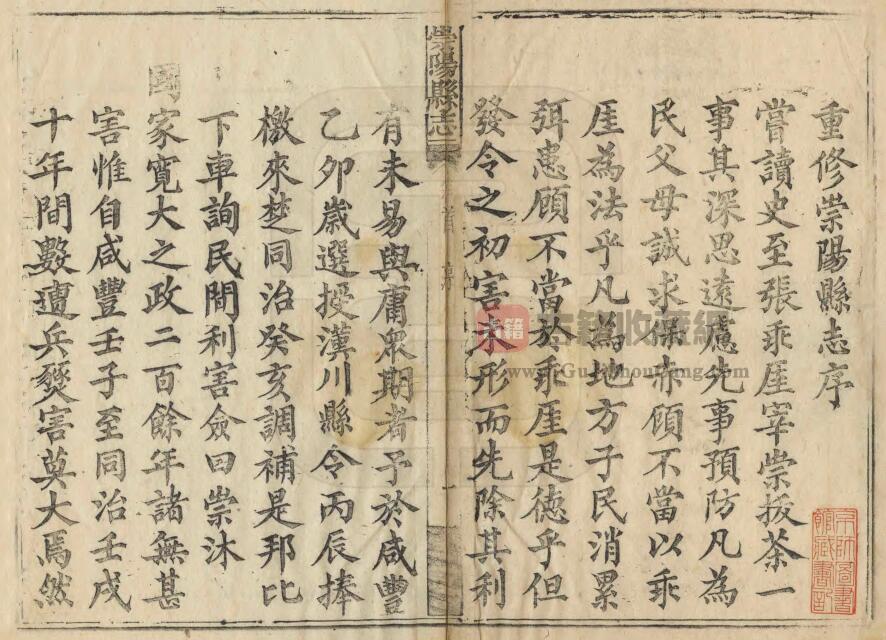 重修崇陽縣志序
嘗讀史至張乖厓宰崇拔茶一
事其深思遠慮先事預防凡為
民父母誠求保赤顧不當以乖
厓為法乎凡為地方子民消累
弭患顧不當於乖厓是德乎但
發令之初害未形而先除其利
崇陽縣志
首 序
一
有未易與庸眾期者予於咸豐
乙卯歲選授漢川縣令丙辰捧
檄來楚同治癸亥調補是邦比
下車詢民間利害僉曰崇沐
國家寬大之政二百餘年諸無甚
害惟自咸豐壬子至同治壬戌
十年間數遭兵燹害莫大焉然
古籍收藏網
www.GuJiShouCang.com
古籍
京師圖書
館藏書記